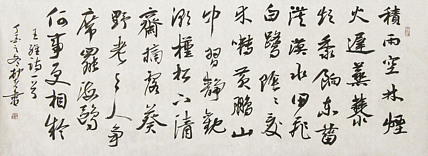 積雨空林煙
火遲蒸藜
炊黍餉東菑
漠漠水田飛
白鷺陰陰夏
木囀黃鸝山
中習靜觀
朝槿松下清
齋折露葵
野老與人爭
席罷海鷗
何事更相疑
王維詩一首